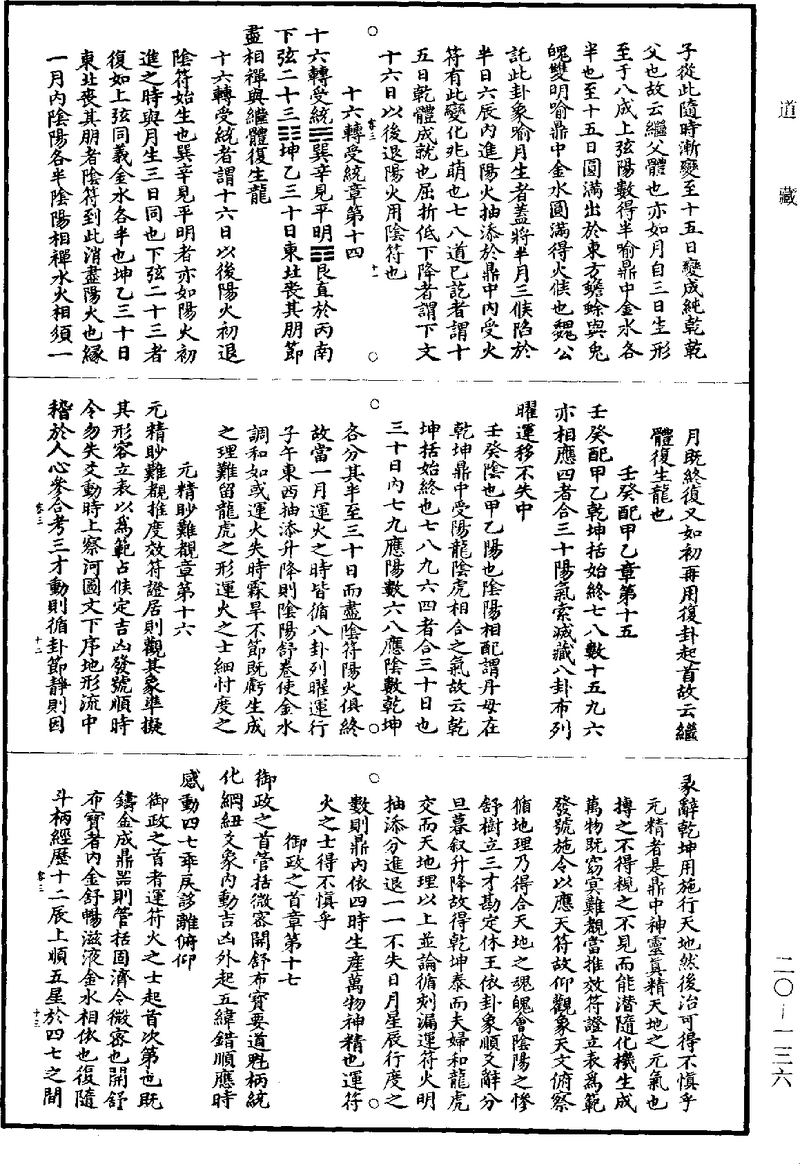 道藏
二〇—一三六
子從此隨時漸變至十五日變成純乾乾
父也故云繼父體也亦如月自三日生形
至于八成上弦陽數得半喻鼎中金水各
半也至十五日圓滿出於東方蟾蜍與兔
魄雙明喻鼎中金水圓滿得火候也魏公
託此卦象喻月生者蓋將半月三候陷於
半日六辰內進陽火抽添於鼎中內受火
符有此變化兆萌也七八道已訖者謂十
五日乾體成就也屈折低下降者謂下文
十六日以後退陽火用陰符也
卷三
十一
十六轉受統章第十四
十六轉受統☴巽辛見平明☶艮直於丙南
下弦二十三☷坤乙三十日東北喪其朋節
盡相禪與繼體復生龍
十六轉受統者謂十六日以後陽火初退
陰符始生也巽辛見平明者亦如陽火初
進之時與月生三日同也下弦二十三者
復如上弦同義金水各半也坤乙三十日
東北喪其朋者陰符到此消盡陽火也緣
一月內陰陽各半陰陽相禪水火相須一
月既終復又如初再用復卦起首故云繼
體復生龍也
壬癸配甲乙章第十五
壬癸配甲乙乾坤括始終七八數十五九六
亦相應四者合三十陽氣索滅藏八卦布列
曜運移不失中
壬癸陰也甲乙陽也陰陽相配謂丹母在
乾坤鼎中受陽龍陰虎相合之氣故云乾
坤括始終也七八九六四者合三十日也
三十日內七九應陽數六八應陰數乾坤
各分其半至三十日而盡陰符陽火俱終
故當一月運火之時皆循八卦列曜運行
子午東西抽添升降則陰陽舒卷使金水
調和如或運火失時霖旱不節既虧生成
之理難留龍虎之形運火之士細忖度之
元精眇難覩章第十六
元精眇難覩推度效符證居則觀其象準擬
其形容立表以爲範占候定吉凶發號順時
令勿失爻動時上察河圖文下序地形流中
稽於人心參合考三才動則循卦節靜則因
卷三
十二
彖辭乾坤用施行天地然後治可得不慎乎
元精者是鼎中神靈真精天地之元氣也
搏之不得視之不見而能潛隨化機生成
萬物既窈冥難覩當推效符證立表爲範
發號施令以應天符故仰觀象天文俯察
循地理乃得合天地之魂魄會陰陽之慘
舒樹立三才勘定休王依卦象順爻辭分
旦暮叙升降故得乾坤泰而夫婦和龍虎
交而天地理以上並論循刻漏運符火明
抽添分進退一一不失日月星辰行度之
數則鼎內依四時生產萬物神精也運符
火之士得不慎乎
御政之首章第十七
御政之首管括微密開舒布寶要道魁柄統
化綱紐爻象內動吉凶外起五緯錯順應時
感動四七乖戾誃離俯仰
御政之首者運符火之士起首次第也既
鑄金成鼎器則管括固濟令微密也開舒
布寶者內金舒暢滋液金水相依也復隨
斗柄經歷十二辰上順五星於四七之間
卷三
十三